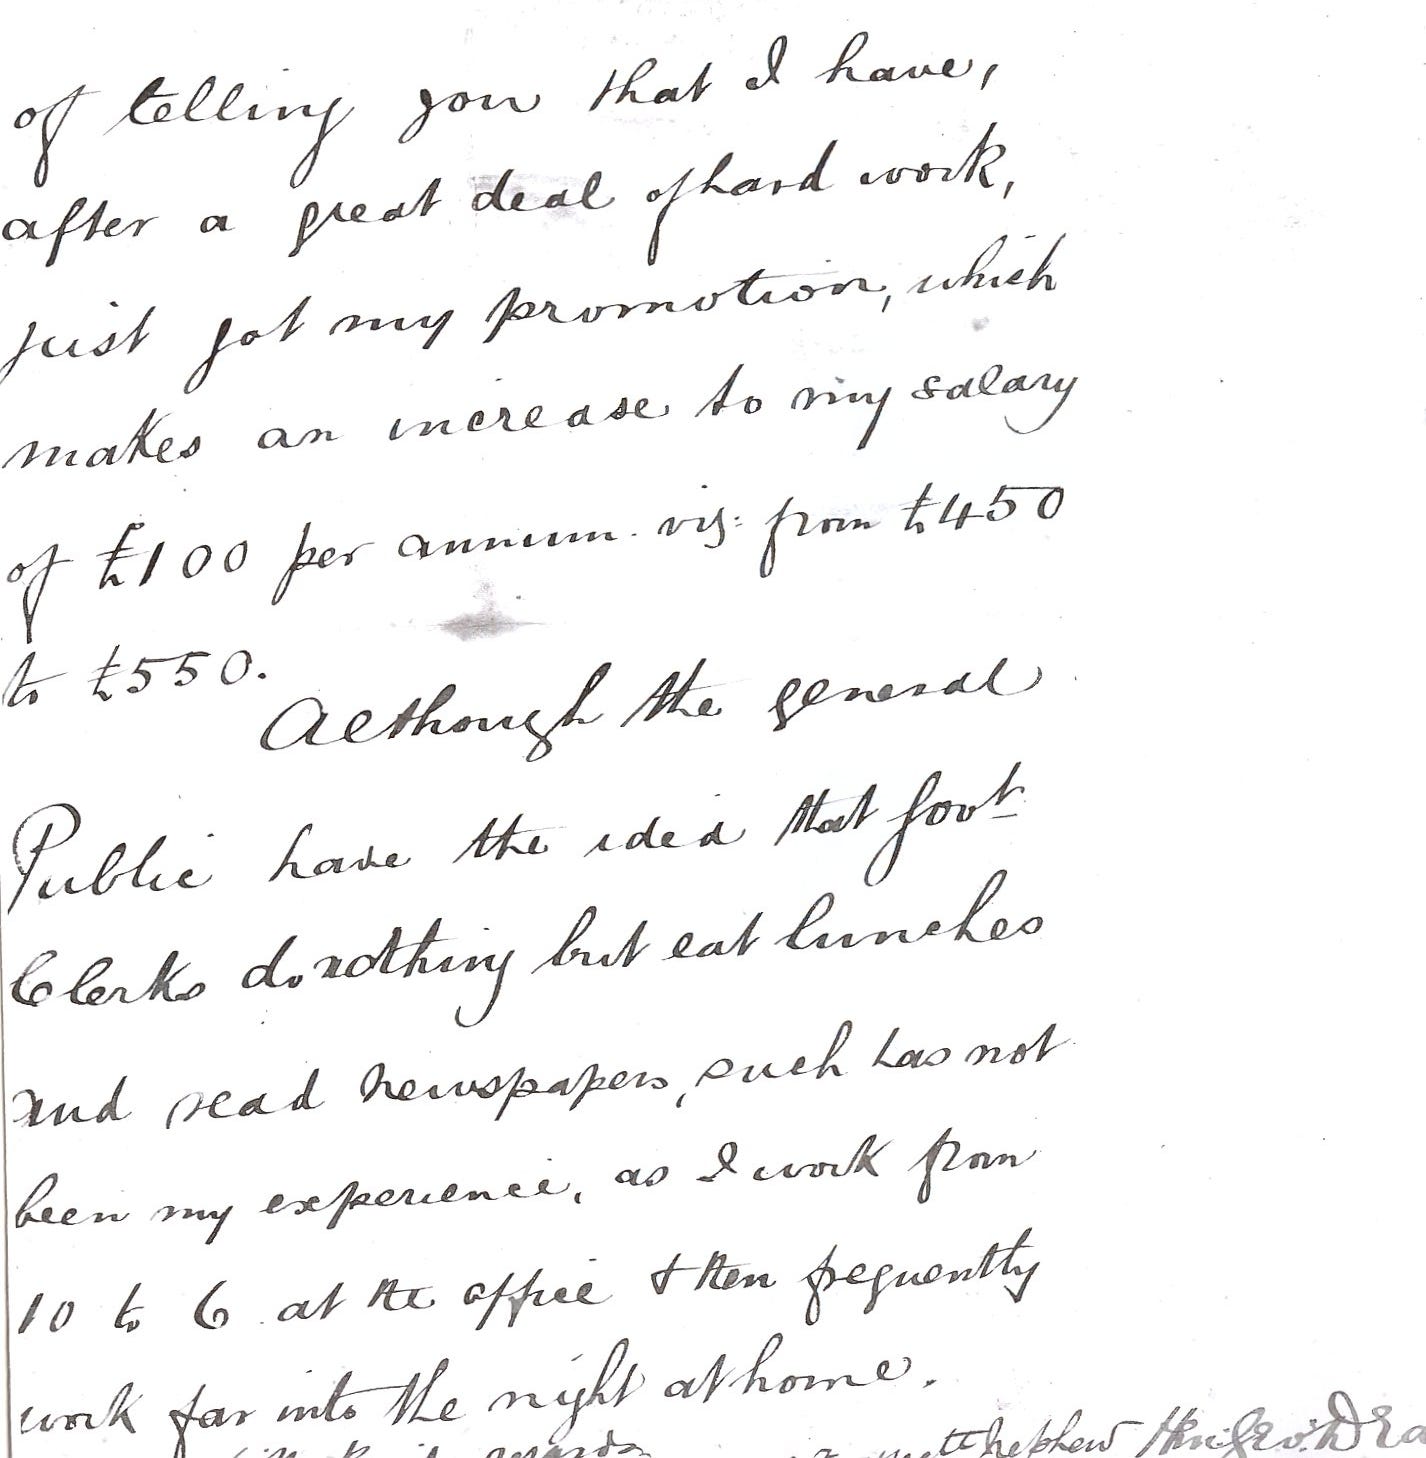 of telling you that I have,
after a great deal of hard work,
just got my promotion, which
makes an increase to my salary
of £100 per annum. viz: from £450
to £550.
Although the general
Public have the idea that Govt
Clerks do nothing but eat lunches
and read newspapers, such has not
been my experience, as I work from
10 to 6 at the office & then frequently
work far into the night at home.
regards nephew